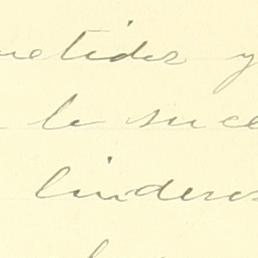 metidos y
le suce
linderos